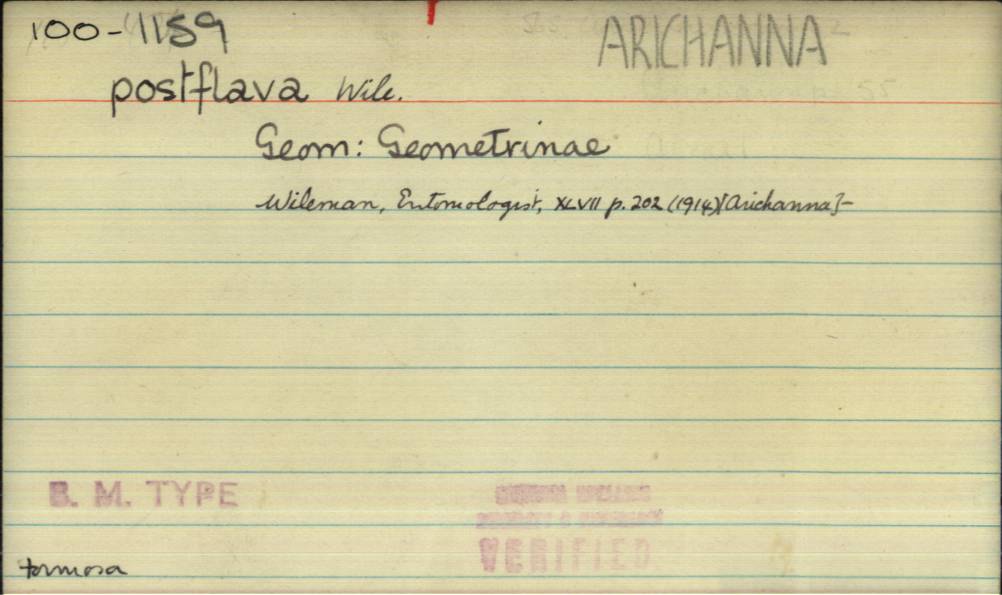 100-1159
ARICHANNA
postflava Wile.
Geom: Geometrinae
Wileman, Entomologist, XLVII p. 202 (1914) [Arichanna]-
B. M. TYPE
VERIFIED
Formosa